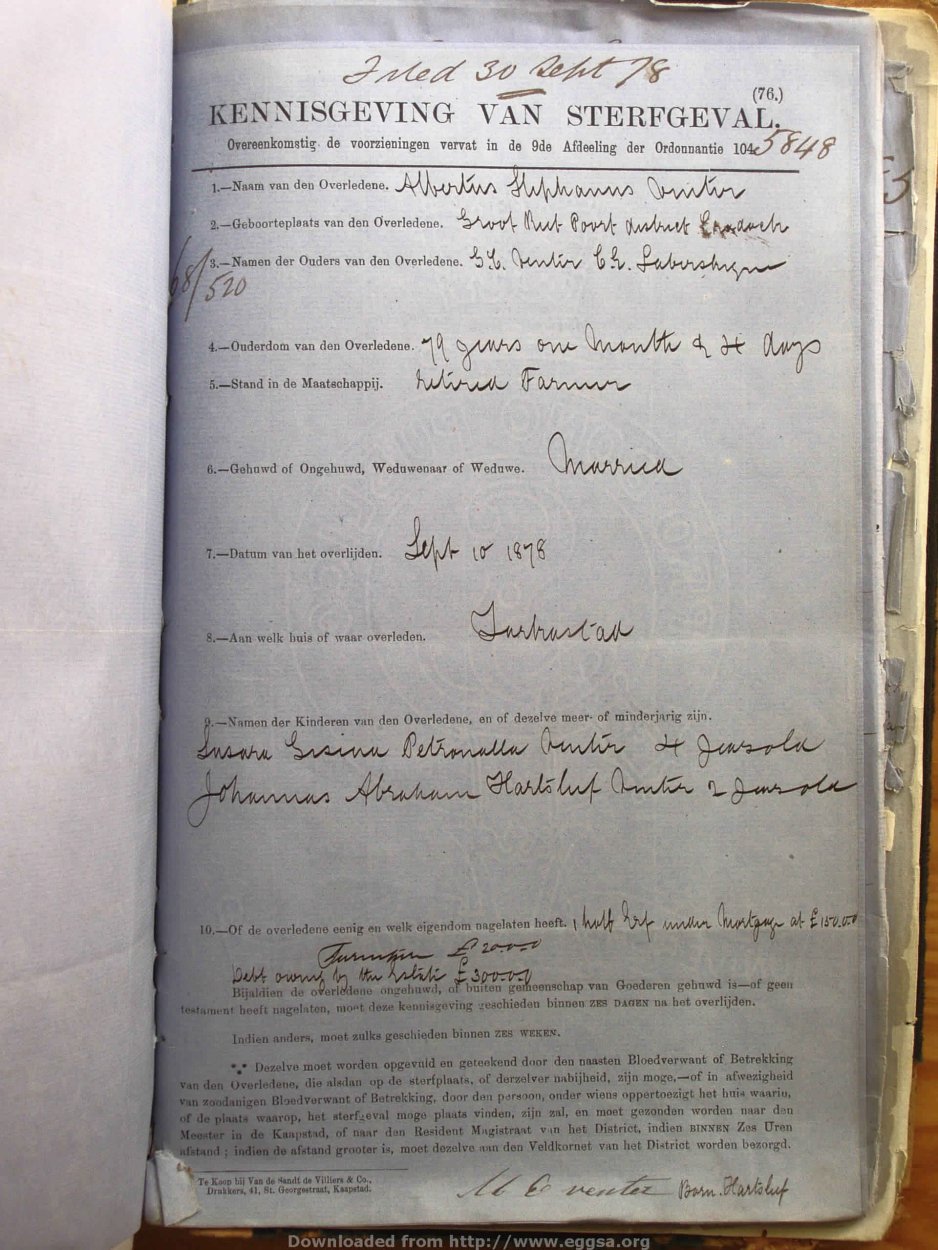 Filed 30 Sept 78
(76.)
KENNISGEVING VAN STERFGEVAL.
Overeenkomstig de voorzieningen vervat in de 9de Afdeeling der Ordonnantie 104.
5848
1.—Naam van den Overledene. Albertus Stephanus Venter
2.—Geboorteplaats van den Overledene. Groot Riet Poort district Cradock
3.—Namen der Ouders van den Overledene. Venter
68/520
4.—Ouderdom van den Overledene. 79 years one Month & 4 days
5.—Stand in de Maatschappij. retired Farmer
6.—Gehuwd of Ongehuwd, Weduwenaar of Weduwe. Married
7.—Datum van het overlijden. Sept 10 1878
8.—Aan welk huis of waar overleden. Tarkastad
9.—Namen der Kinderen van den Overledene, en of dezelve meer- of minderjarig zijn.
Susara Gesina Petronella Venter 4 Jearsold
Johannas Abraham Hartsluf Venter 2 Jearsold
10.—Of de overledene eenig en welk eigendom nagelaten heeft. 1 half Erf under Mortgage at £150.0.0
Furniture £20.0.0
Debt owing by the Estate £300.0.0
Bijaldien de overledene ongehuwd, of buiten gemeenschap van Goederen gehuwd is—of geen
testament heeft nagelaten, moet deze kennisgeving geschieden binnen ZES DAGEN na het overlijden.
Indien anders, moet zulks geschieden binnen ZES WEKEN.
*** Dezelve moet worden opgevuld en geteekend door den naasten Bloedverwant of Betrekking
van den Overledene, die alsdan op de sterfplaats, of derzelver nabijheid, zijn moge,—of in afwezigheid
van zoodanigen Bloedverwant of Betrekking, door den persoon, onder wiens oppertoezigt het huis waarin,
of de plaats waarop, het sterfgeval moge plaats vinden, zijn zal, en moet gezonden worden naar den
Meester in de Kaapstad, of naar den Resident Magistraat van het District, indien BINNEN Zes Uren
afstand; indien de afstand grooter is, moet dezelve aan den Veldkornet van het District worden bezorgd.
Te Koop bij Van de Sandt de Villiers & Co.,
Drukkers, 41, St. Georgestraat, Kaapstad.
M C venter Born. Hartsluf
Downloaded from http://www.eggsa.org